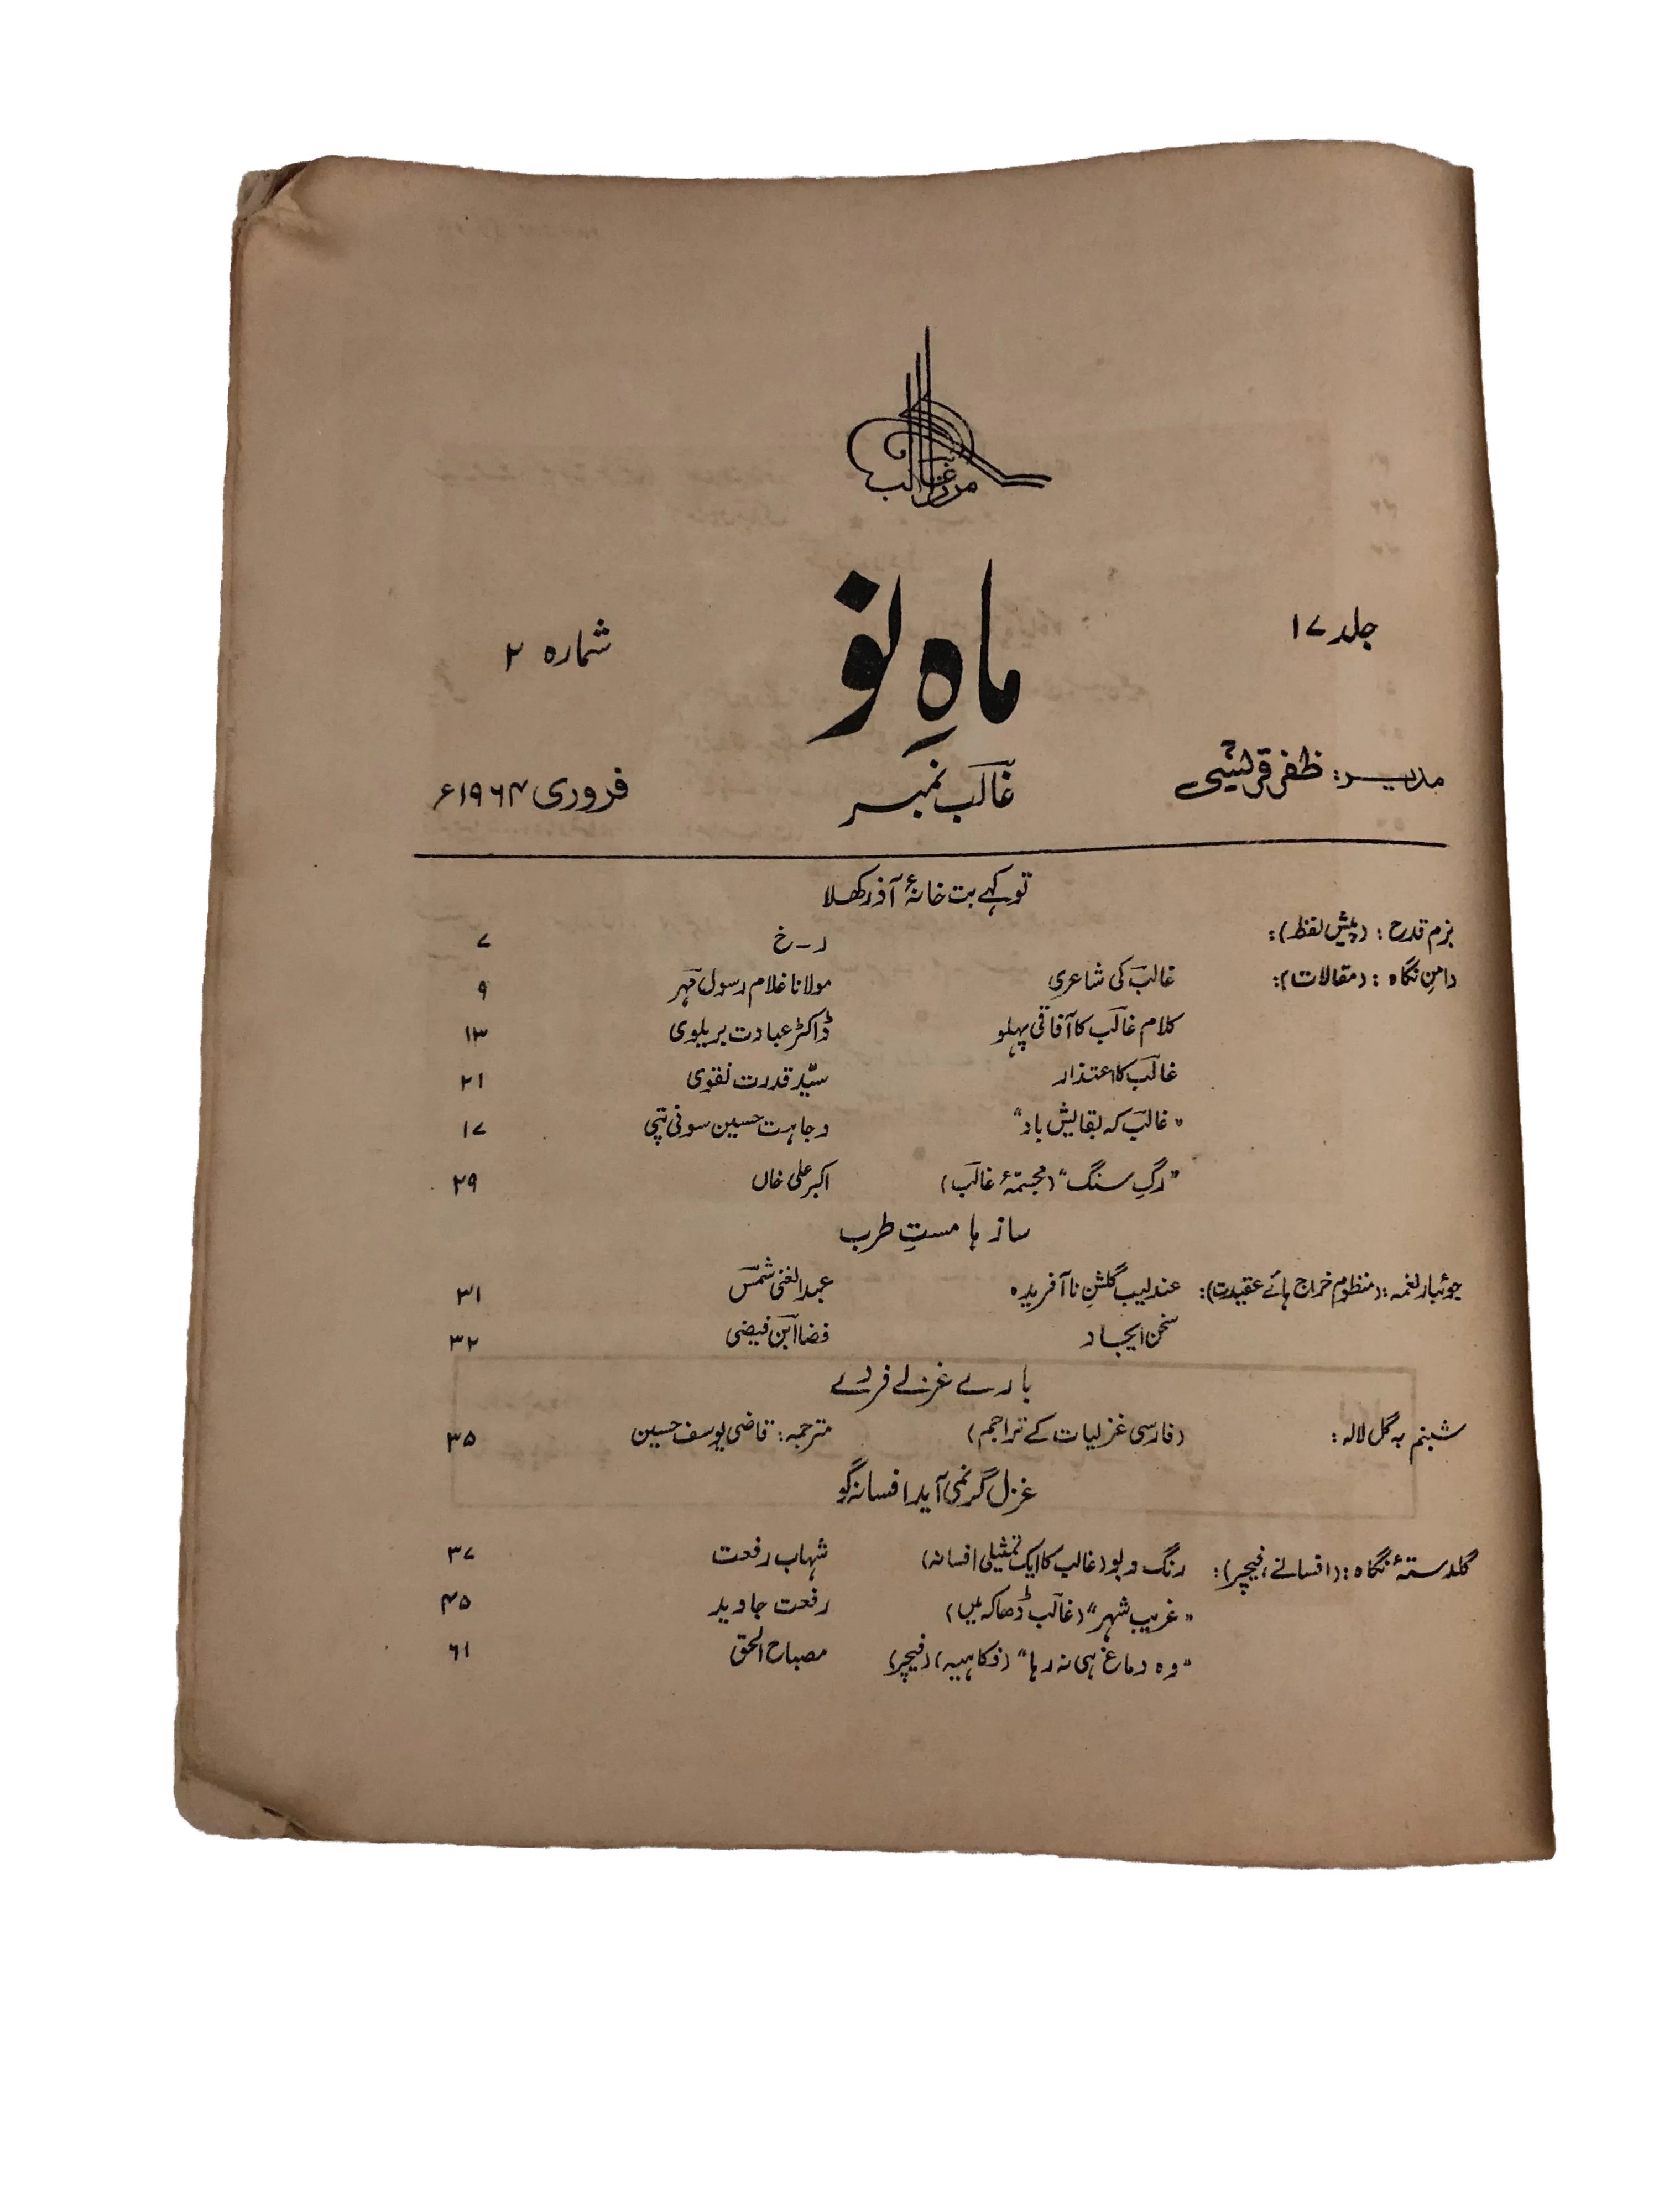 مرزا غالب
ماہِ نو
جلد ۱۷
شمارہ ۲
مدیر: ظفر قریشی
غالب نمبر
فروری ۱۹۶۴ء
تو کہے بت خانۂ آذر کھلا
بزم قدح: (پیش لفظ): ر-خ ۷
دامنِ نگاہ: (مقالات): غالب کی شاعری مولانا غلام رسول مہر ۹
کلام غالب کا آفاقی پہلو ڈاکٹر عبادت بریلوی ۱۳
غالب کا اعتذار سیّد قدرت نقوی ۲۱
"غالب کہ بقایش باد" وجاہت حسین سونی پتی ۱۷
"رگِ سنگ" (مجسّمۂ غالب) اکبر علی خاں ۲۹
ساز ہا مستِ طرب
جوئبار نغمہ: (منظوم خراج ہائے عقیدت): عندلیب گلشنِ ناآفریدہ عبدالغنی شمس ۳۱
سخن ایجاد فضا ابن فیضی ۳۲
بارے غزلے فردے
شبنم بہ گل لالہ: (فارسی غزلیات کے تراجم) مترجمہ: قاضی یوسف حسین ۳۵
غزل گر نمی آید افسانہ گو
گلدستۂ نگاہ: (افسانے، فیچر): رنگ و بو (غالب کا ایک تمثیلی افسانہ) شہاب رفعت ۳۷
"غریب شہر" (غالب ڈھاکہ میں) رفعت جاوید ۴۵
"وہ دماغ ہی نہ رہا" (فکاہیہ) (فیچر) مصباح الحق ۶۱